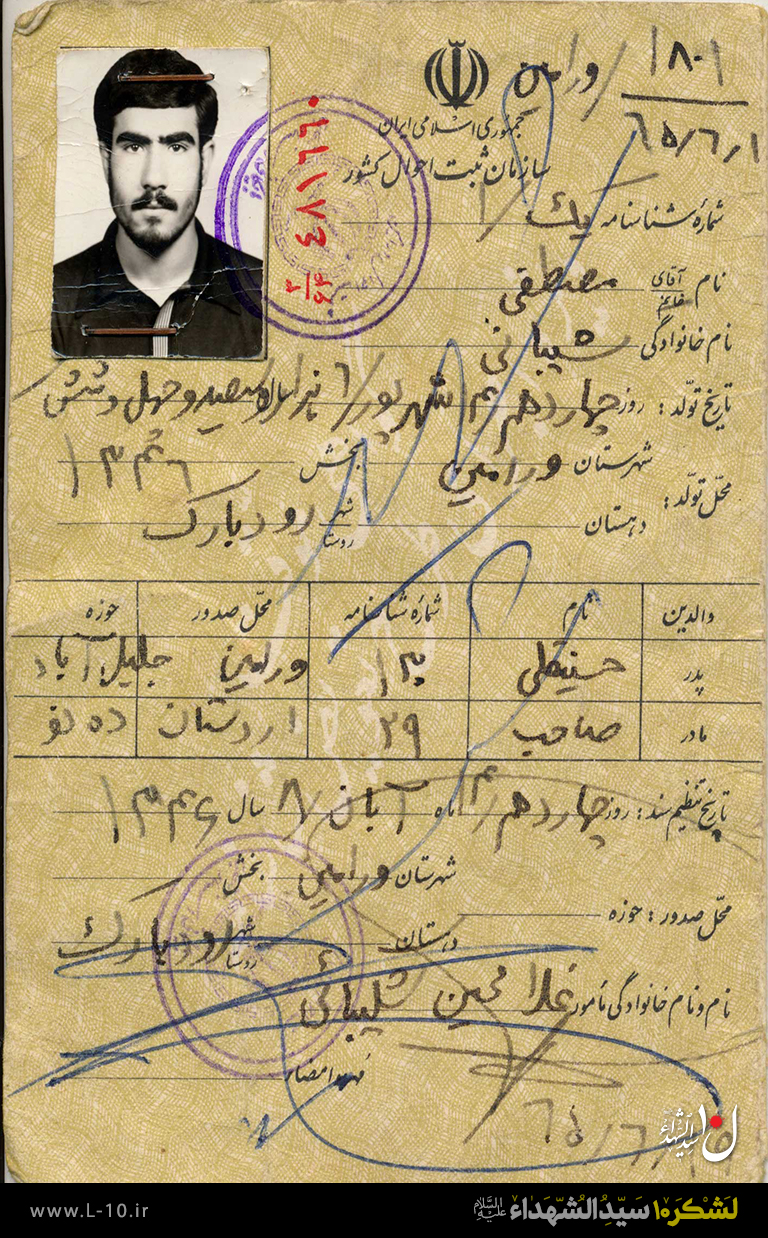 ۱۸۰۱ / ورامین
۶۵/۶/۱
جمهوری اسلامی ایران
سازمان ثبت احوال کشور
۴۸۱۶۶۰
شمارهٔ شناسنامه یک / ۱
نام آقای خانم مصطفی
نام خانوادگی شیبانی
تاریخ تولد: روز چهاردهم شهریور / ۶ هزار و سیصد و چهل و شش
محل تولد: شهرستان ورامین بخش ۱۳۴۶
دهستان شهر روستا رودبارک
والدین نام شماره شناسنامه محل صدور حوزه
پدر حسینعلی ۱۳ ورامین جلیل آباد
مادر صاحب ۲۹ اردستان ده نو
تاریخ تنظیم سند: روز چهاردهم / ۱۴ ماه آبان / ۸ سال ۱۳۴۶
شهرستان ورامین بخش
محل صدور: حوزه
دهستان شهر روستا رودبارک
نام و نام خانوادگی مأمور غلامحسین شیبانی
مهر و امضاء
۶۵/۶/
ل۱۰ سیدالشهداء
www.L-10.ir
لشکر۱۰ سیدالشهداء علیه السلام